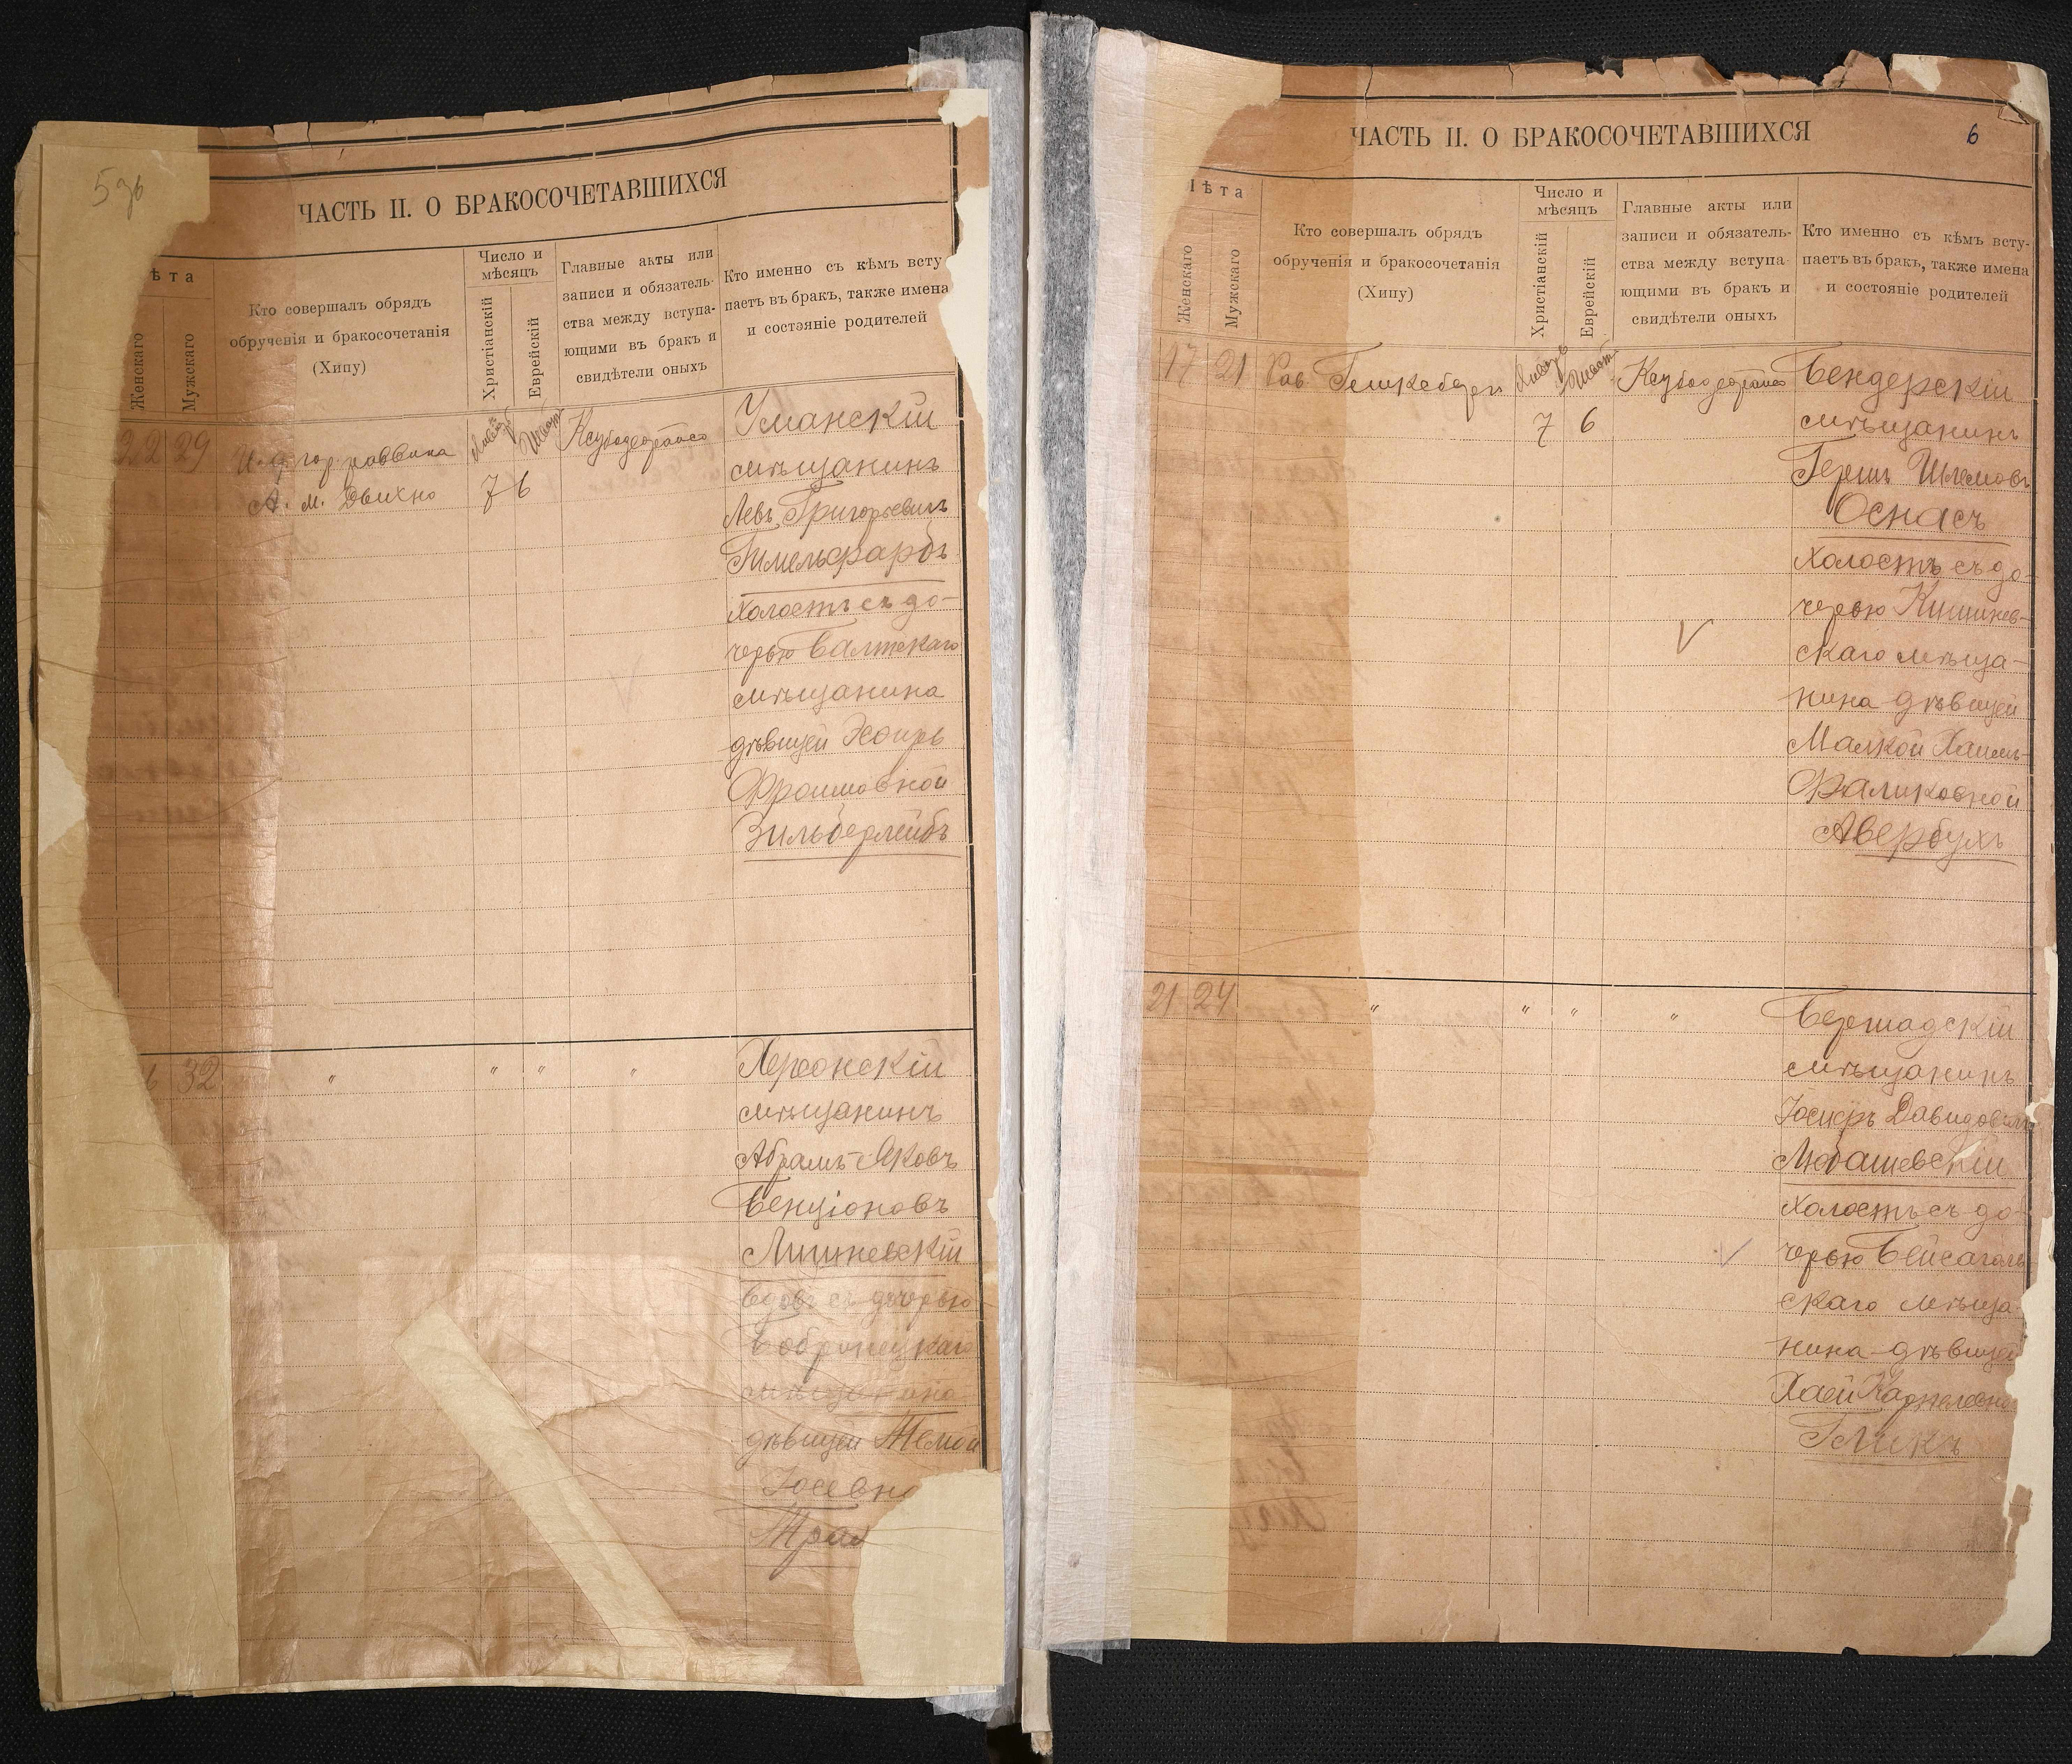 ЧАСТЬ II. О БРАКОСОЧЕТАВШИХСЯ
ѣта
Женскаго
Мужскаго
Кто совершалъ обрядъ
обрученія и бракосочетанія
(Хипу)
Число и
мѣсяцъ
Христіанскій
Еврейскій
Главные акты или
записи и обязатель-
ства между вступа-
ющими въ бракъ и
свидѣтели оныхъ
Кто именно съ кѣмъ всту
паетъ въ бракъ, также имена
и состояніе родителей
22 29
гор раввина
А. м. Двихно
7 6
Уманскій
мѣщанинъ
Левъ Григорьевичъ
Гимельфарбъ
холостъ съ до-
черью Балтскаго
мѣщанина
дѣвицей Эсѳирь
Фроимовной
Зильберлейбъ
6 32 " " " "
Херсонскій
мѣщанинъ
Абрамъ-Яковъ
Бенціоновъ
Лишневскій
вдовъ съ дочерью
Бобринецкаго
дѣвицей
Юсевн
Трах
ЧАСТЬ II. О БРАКОСОЧЕТАВШИХСЯ
6
Iѣта
Женскаго
Мужскаго
Кто совершалъ обрядъ
обрученія и бракосочетанія
(Хипу)
Число и
мѣсяцъ
Христіанскій
Еврейскій
Главные акты или
записи и обязатель-
ства между вступа
ющими въ бракъ и
свидѣтели оныхъ
Кто именно съ кѣмъ всту-
паетъ въ бракъ, также имена
и состояніе родителей
17 21 Рав
7 6
Бендерскій
мѣщанинъ
Гершъ Шлемовъ
Оснасъ
холостъ съ до-
черью Кишинев-
скаго мѣща-
нина дѣвицей
Малкой Хаимъ-
Фаликовной
Авербухъ
21 24 " " " "
Бершадскій
мѣщанинъ
Іосифъ Давидовичъ
Любашевскій
холостъ съ до-
черью Бейсаголь
скаго мѣща-
нина дѣвицей
Хаей
Гликъ